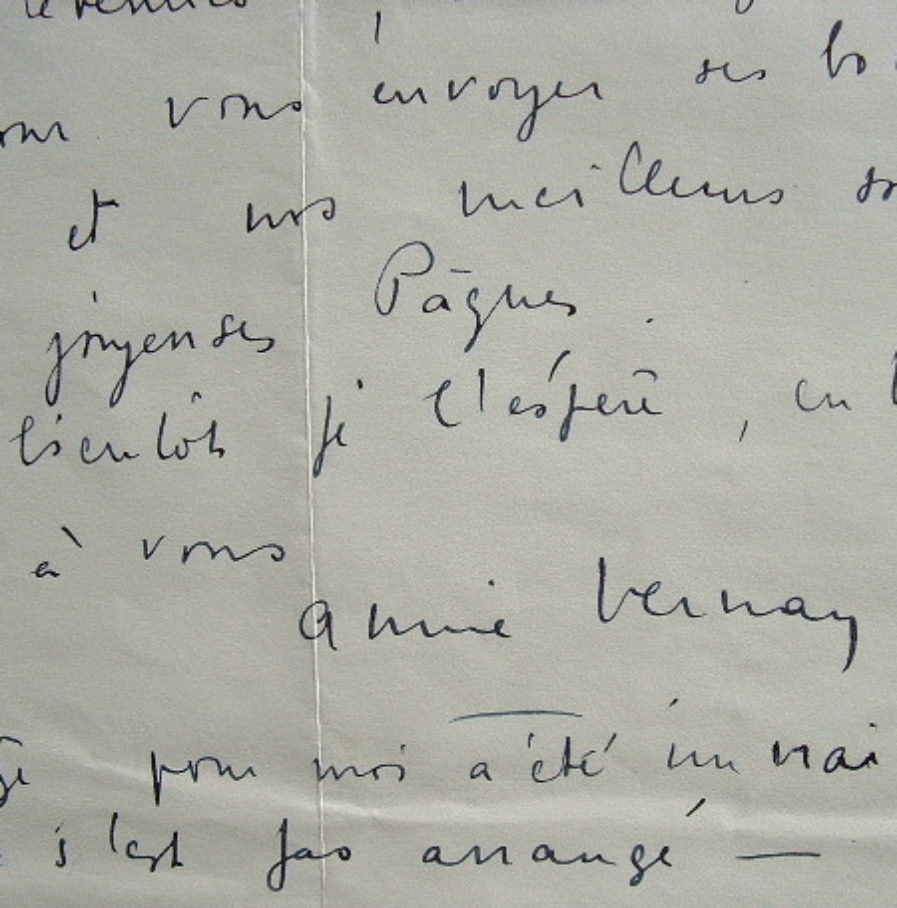 vous envoyer ses
et nos meilleurs
joyeuses Pâques.
bientôt je l'espère, en
à vous
Annie Vernay
pour moi a été un vrai
s'est pas arrangé —